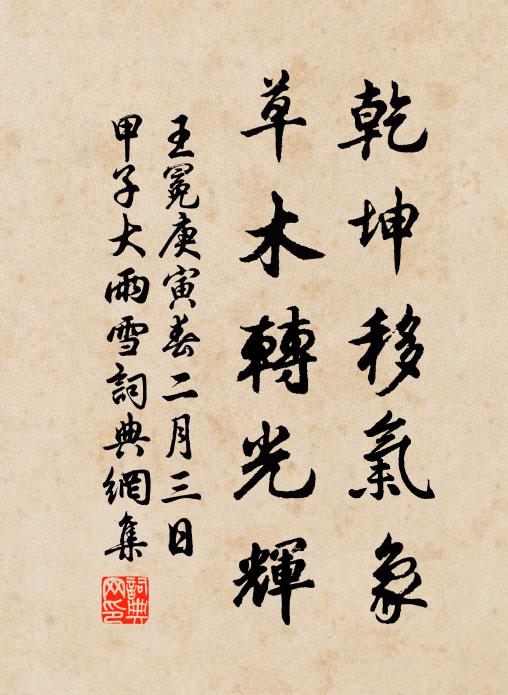 乾坤移氣象
草木轉光輝
王冕庚寅春二月三日
甲子大雨雪詞典網集
詞典
网印